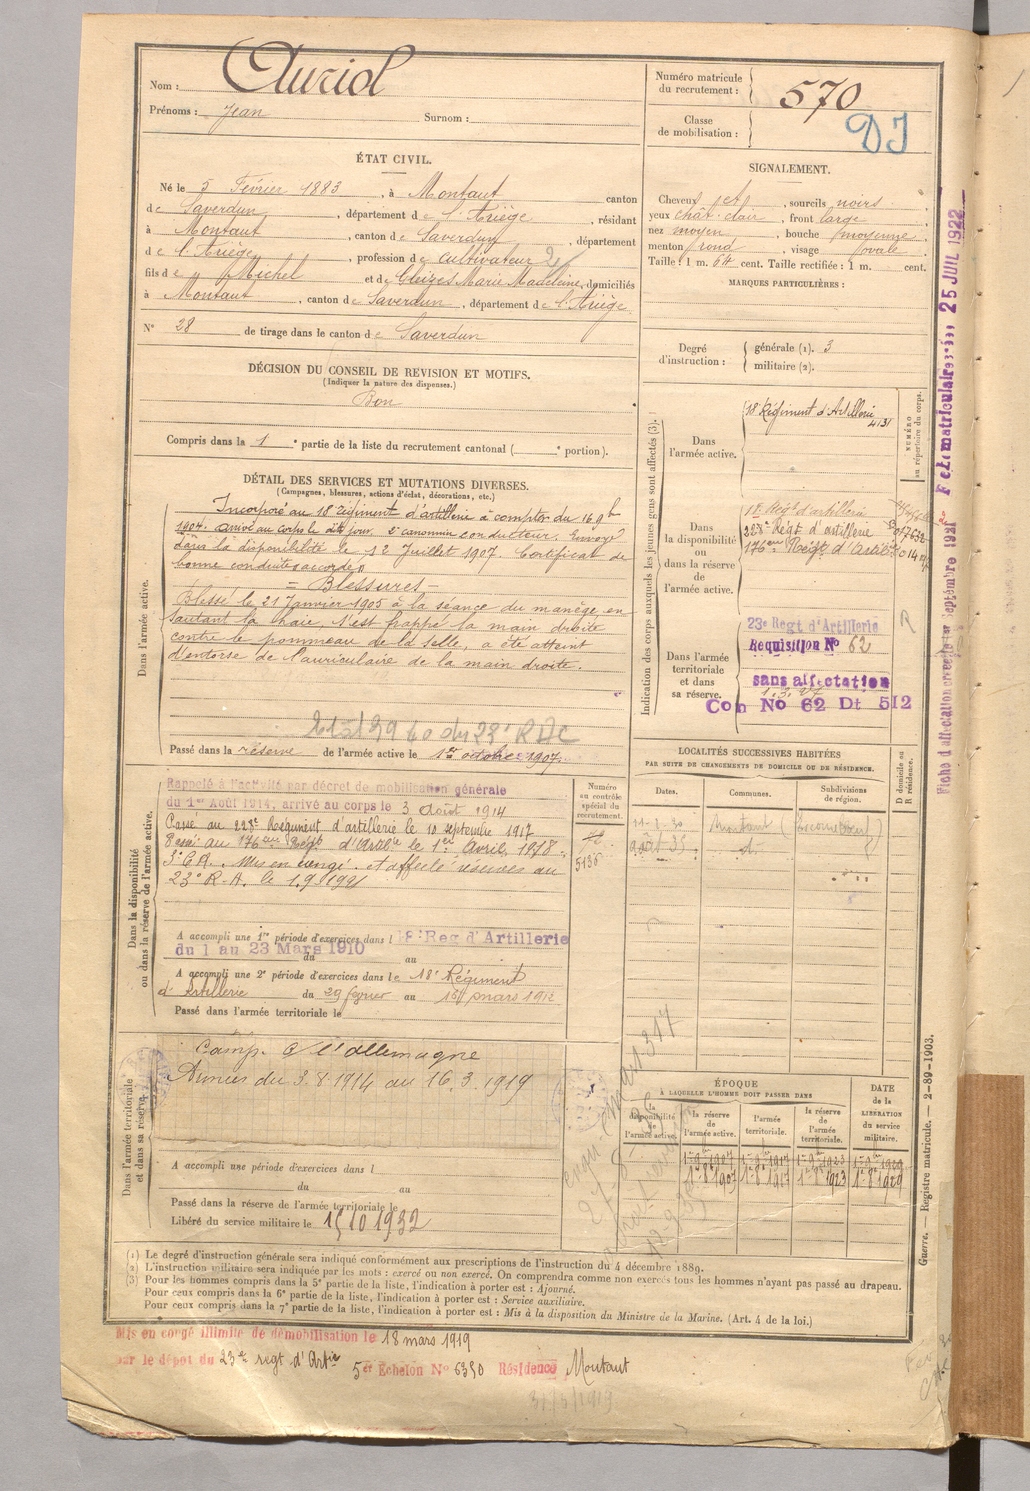 Nom : Auriol
Prénoms : Jean Surnom :
Numéro matricule du recrutement : 570
Classe de mobilisation :
DJ
ÉTAT CIVIL.
Né le 5 Février 1883, à Montaut canton
de Saverdun, département de l'Ariège, résidant
à Montaut, canton de Saverdun, département
de l'Ariège, profession de cultivateur
fils de Michel et de Cleizes Marie Madeleine, domiciliés
à Montaut, canton de Saverdun, département de l'Ariège.
N° 28 de tirage dans le canton de Saverdun
SIGNALEMENT.
Cheveux jet, sourcils noirs
yeux chât. clair, front large
nez moyen, bouche moyenne
menton rond, visage ovale
Taille : 1 m. 64 cent. Taille rectifiée : 1 m. cent.
MARQUES PARTICULIÈRES :
Degré d'instruction : générale (1). 3
militaire (2).
DÉCISION DU CONSEIL DE REVISION ET MOTIFS.
(Indiquer la nature des dispenses.)
Bon
Compris dans la 1e partie de la liste du recrutement cantonal ( e portion).
DÉTAIL DES SERVICES ET MUTATIONS DIVERSES.
(Campagnes, blessures, actions d'éclat, décorations, etc.)
Dans l'armée active.
Incorporé au 18e régiment d'artillerie à compter du 16 9bre
1904. Arrivé au corps le dit jour. 2e canonnier conducteur. Envoyé
dans la disponibilité le 12 Juillet 1907. Certificat de
bonne conduite accordé
= Blessures =
Blessé le 21 Janvier 1905 à la séance du manège en
sautant la haie, s'est frappé la main droite
contre le pommeau de la selle, a été atteint
d'entorse de l'auriculaire de la main droite.
Passé dans la réserve de l'armée active le 1er octobre 1907
Dans la disponibilité ou dans la réserve de l'armée active.
Rappelé à l'activité par décret de mobilisation générale
du 1er Août 1914, arrivé au corps le 3 Août 1914
Passé au 228e Régiment d'artillerie le 10 septembre 1917
Passé au 176eme Régt d'Artie le 1er Avril 1918.
A accompli une 1re période d'exercices dans l 18e Reg d'Artillerie
du 1 au 23 Mars 1910
du au
A accompli une 2e période d'exercices dans le 18e Régiment
d'Artillerie du 29 février au 16 mars 1912
Passé dans l'armée territoriale le
Numéro au contrôle spécial du recrutement.
Dans l'armée territoriale et dans sa réserve.
Camp. C/ l'allemagne
Armées du 3.8.1914 au 16.3.1919
A accompli une période d'exercices dans l
du au
Passé dans la réserve de l'armée territoriale le
Libéré du service militaire le 15 10 1932
Indication des corps auxquels les jeunes gens sont affectés (3).
Dans l'armée active.
18e Régiment d'Artillerie
4131
NUMÉRO au répertoire du corps.
Dans la disponibilité ou dans la réserve de l'armée active.
18e Régt d'artillerie
228e Régt d'artillerie
176eme Régt d'Artie
Dans l'armée territoriale et dans sa réserve.
23e Regt d'Artillerie
Requisition N° 62
sans affectation
Con No 62 Dt 512
R
LOCALITÉS SUCCESSIVES HABITÉES
PAR SUITE DE CHANGEMENTS DE DOMICILE OU DE RÉSIDENCE.
Dates. Communes. Subdivisions de région. D domicile ou R résidence.
Montaut
août 35 d°
ÉPOQUE
À LAQUELLE L'HOMME DOIT PASSER DANS
la disponibilité de l'armée active. la réserve de l'armée active. l'armée territoriale. la réserve de l'armée territoriale.
DATE de la LIBÉRATION du service militaire.
1er 8bre 1907 1er 8bre 1917 1er 8bre 1923 1er 8bre 1929
(1) Le degré d'instruction générale sera indiqué conformément aux prescriptions de l'instruction du 4 décembre 1889.
(2) L'instruction militaire sera indiquée par les mots : exercé ou non exercé. On comprendra comme non exercés tous les hommes n'ayant pas passé au drapeau.
(3) Pour les hommes compris dans la 5e partie de la liste, l'indication à porter est : Ajourné.
Pour ceux compris dans la 6e partie de la liste, l'indication à porter est : Service auxiliaire.
Pour ceux compris dans la 7e partie de la liste, l'indication à porter est : Mis à la disposition du Ministre de la Marine. (Art. 4 de la loi.)
Mis en congé illimité de démobilisation le 18 mars 1919
par le dépot du 23e regt d'Artie 5er Echelon N° 6350 Résidence Montaut
Guerre. — Registre matricule. — 2-89-1903.
25 JUIL 1922